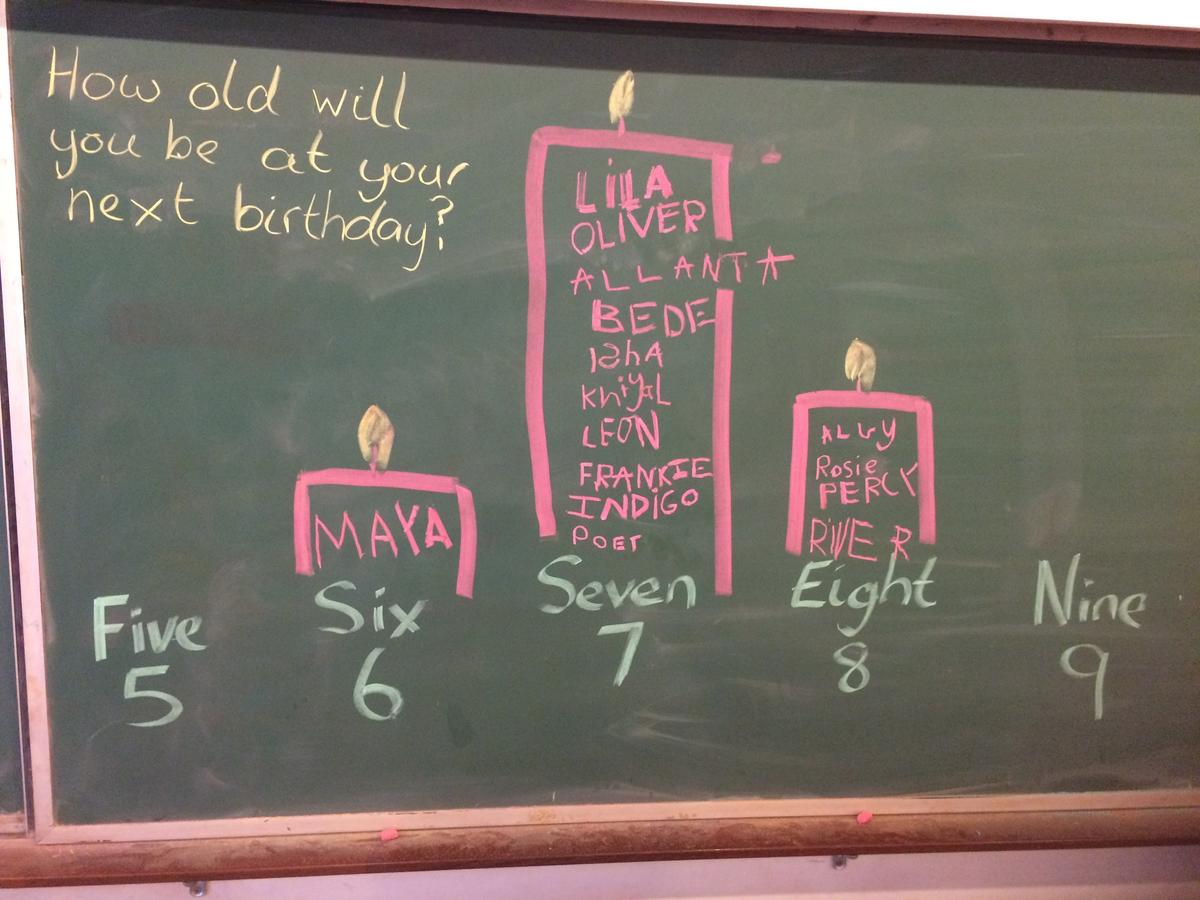 How old will
you be at your
next birthday?
LiLA
OLIVER
ALLANTA
BEDE
IShA
KhiyaL
LEON
FRANKIE
INDiGO
POET
MAYA
ALGY
Rosie
PERCY
RIVER
Five
5
Six
6
Seven
7
Eight
8
Nine
9